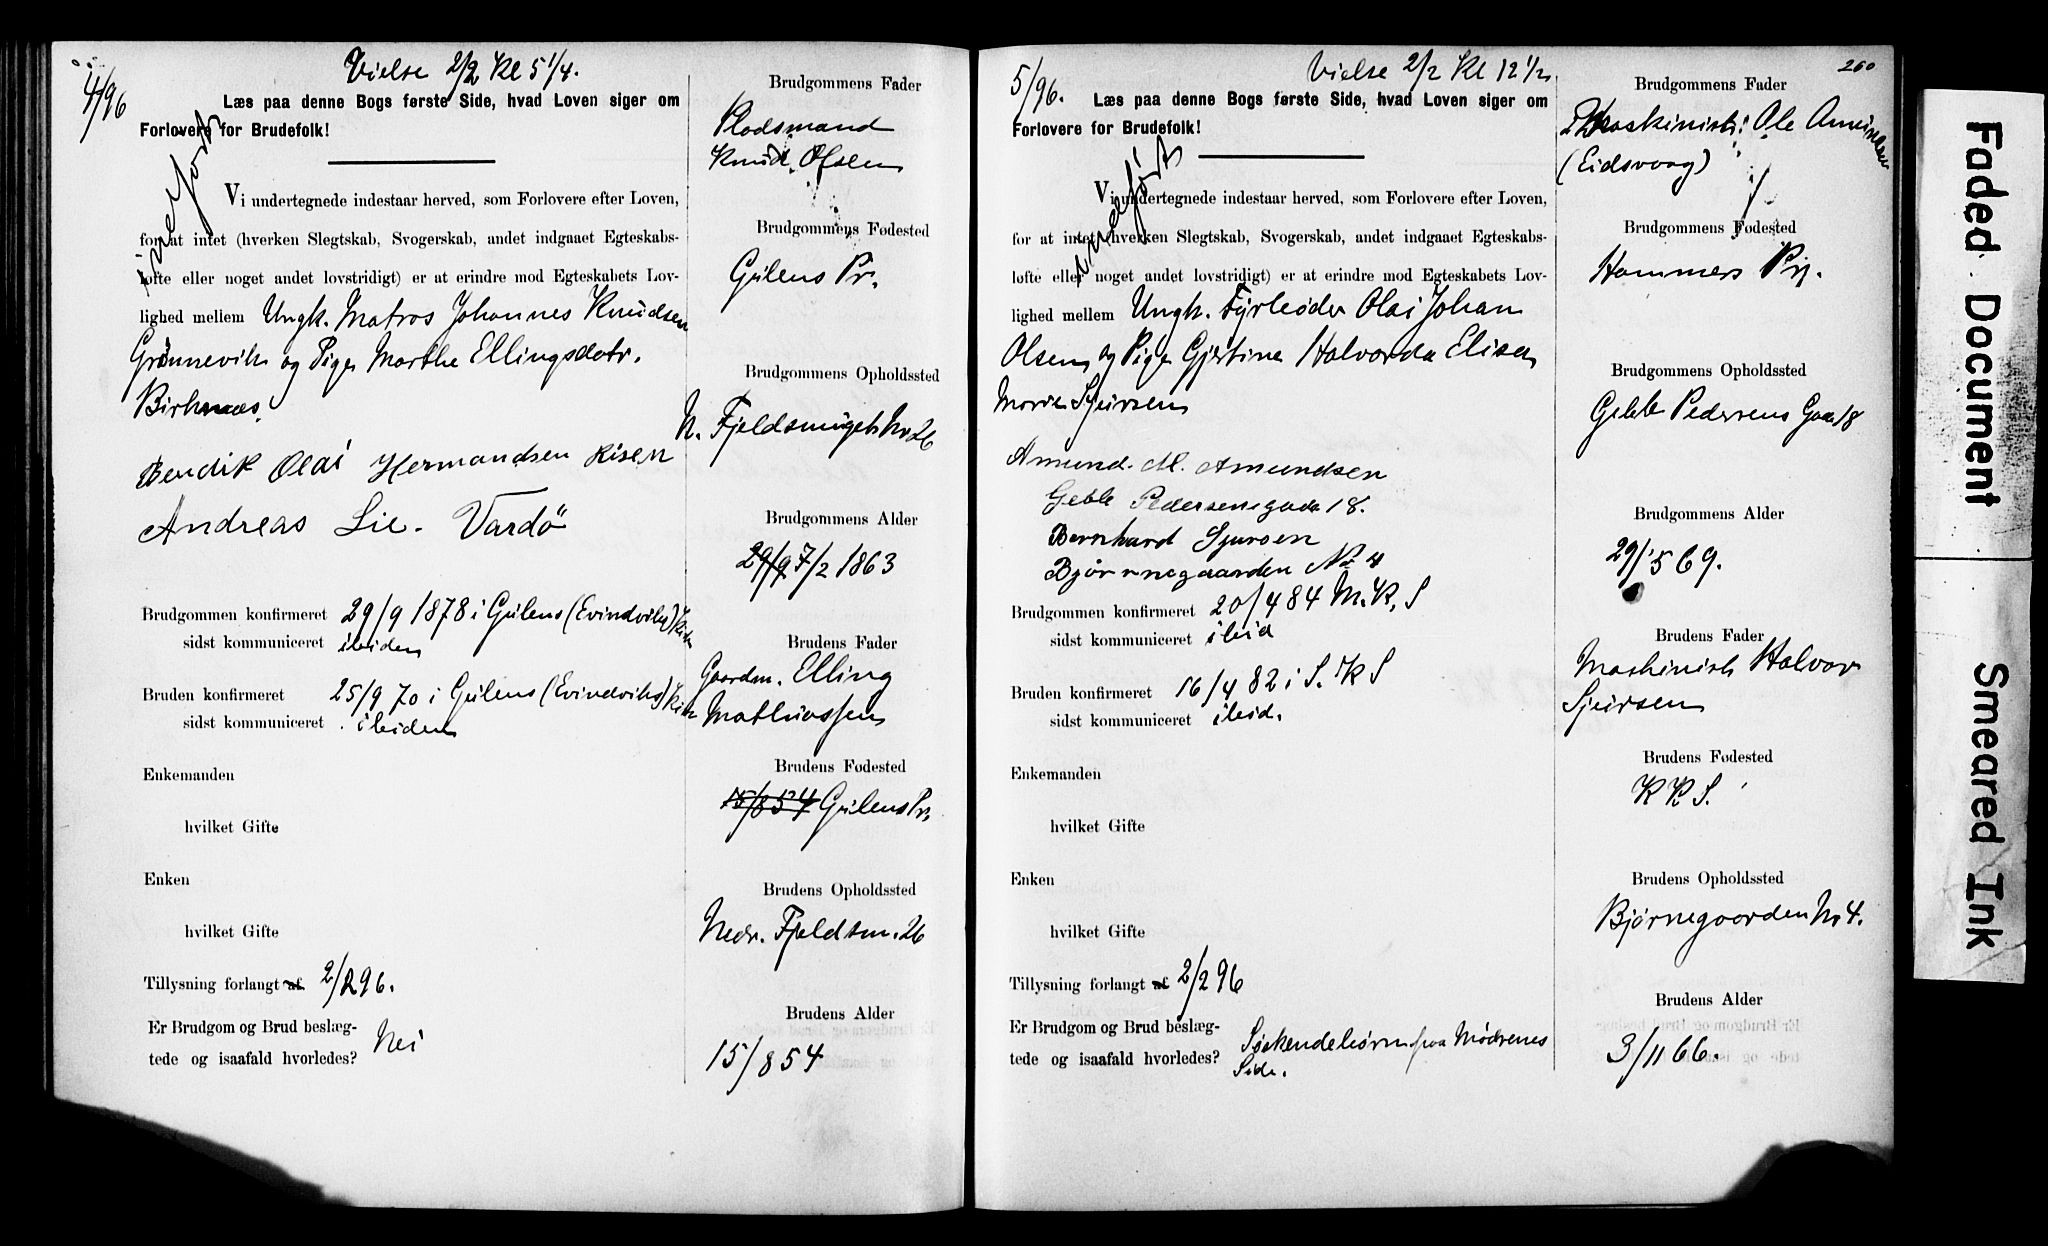 4/96
Vielse 2/2 Kl 5 1/4.
Læs paa denne Bogs første Side, hvad Loven siger om
Forlovere for Brudefolk!
indført
Vi undertegnede indestaar herved, som Forlovere efter Loven,
for at intet (hverken Slegtskab, Svogerskab, andet indgaaet Egteskabs-
løfte eller noget andet lovstridigt) er at erindre mod Egteskabets Lov-
lighed mellem Ungk. Matros Johannes Knudsen
Grønnevik og Pige Marthe Ellingsdotr.
Birknæs.
Bendik Olai Hermandsen Risen
Andreas Lie. Vardö
Brudgommen konfirmeret 29/9 1878 i Gulens (Evindviks) Kirke
sidst kommuniceret ibiden
Bruden konfirmeret 25/9 70 i Gulens (Evindviks) Kirke
sidst kommuniceret . ibiden
Enkemanden
hvilket Gifte
Enken
hvilket Gifte
Tillysning forlangt af 2/2 96.
Er Brudgom og Brud beslæg-
tede og isaafald hvorledes? Nei
Brudgommens Fader
Pladsmand
Knud Olsen
Brudgommens Fødested
Gulens Pr.
Brudgommens Opholdssted
N. Fjeldsmuget No 26
Brudgommens Alder
29/9 7/2 1863
Brudens Fader
Gaardm. Elling
Mathiassen
Brudens Fødested
15/8 54 Gulens Pr.
Brudens Opholdssted
Nedr. Fjeldsm. 26
Brudens Alder
15/8 54
5/96.
Vielse 2/2 Kl 12 1/2.
Læs paa denne Bogs første Side, hvad Loven siger om
Forlovere for Brudefolk!
indført
Vi undertegnede indestaar herved, som Forlovere efter Loven,
for at intet (hverken Slegtskab, Svogerskab, andet indgaaet Egteskabs-
løfte eller noget andet lovstridigt) er at erindre mod Egteskabets Lov-
lighed mellem Ungk. Fyrbøder Olai Johan
Olsen og Pige Gjertine Halvarda Elisa
Marie Sjursen
Amund. M. Amundsen
Geble Pedersensgade 18.
Bernhard Sjursen
Bjørnegaarden No 4
Brudgommen konfirmeret 20/4 84 M. K. S
sidst kommuniceret ibid
Bruden konfirmeret 16/4 82 i S. K S
sidst kommuniceret ibid.
Enkemanden
hvilket Gifte
Enken
hvilket Gifte
Tillysning forlangt af 2/2 96
Er Brudgom og Brud beslæg-
tede og isaafald hvorledes? Søskendebørn paa Mødrenes
Side.
260
Brudgommens Fader
Maskinist Ole
(Eidsvaag)
Brudgommens Fødested
Hammers Prj.
Brudgommens Opholdssted
Geble Pedersens Gade 18
Brudgommens Alder
29/5 69.
Brudens Fader
Maskinist Halvor
Sjursen
Brudens Fødested
K K S.
Brudens Opholdssted
Bjørnegaarden No 4.
Brudens Alder
3/11 66.
Faded Document
Smeared Ink